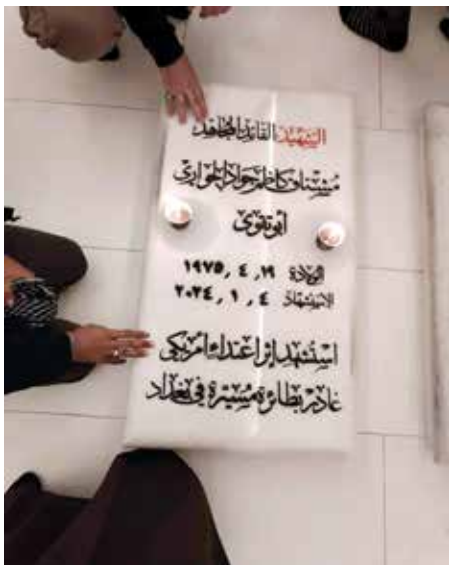 الشهيد القائد المجاهد
مشتاق كاظم جواد الجواري
ابو تقوى
الولادة ١٩ ، ٤ ، ١٩٧٥
الاستشهاد ٤ ، ١ ، ٢٠٢٤
استشهد إثر اعتداء امريكي
غادر بطائرة مسيرة في بغداد